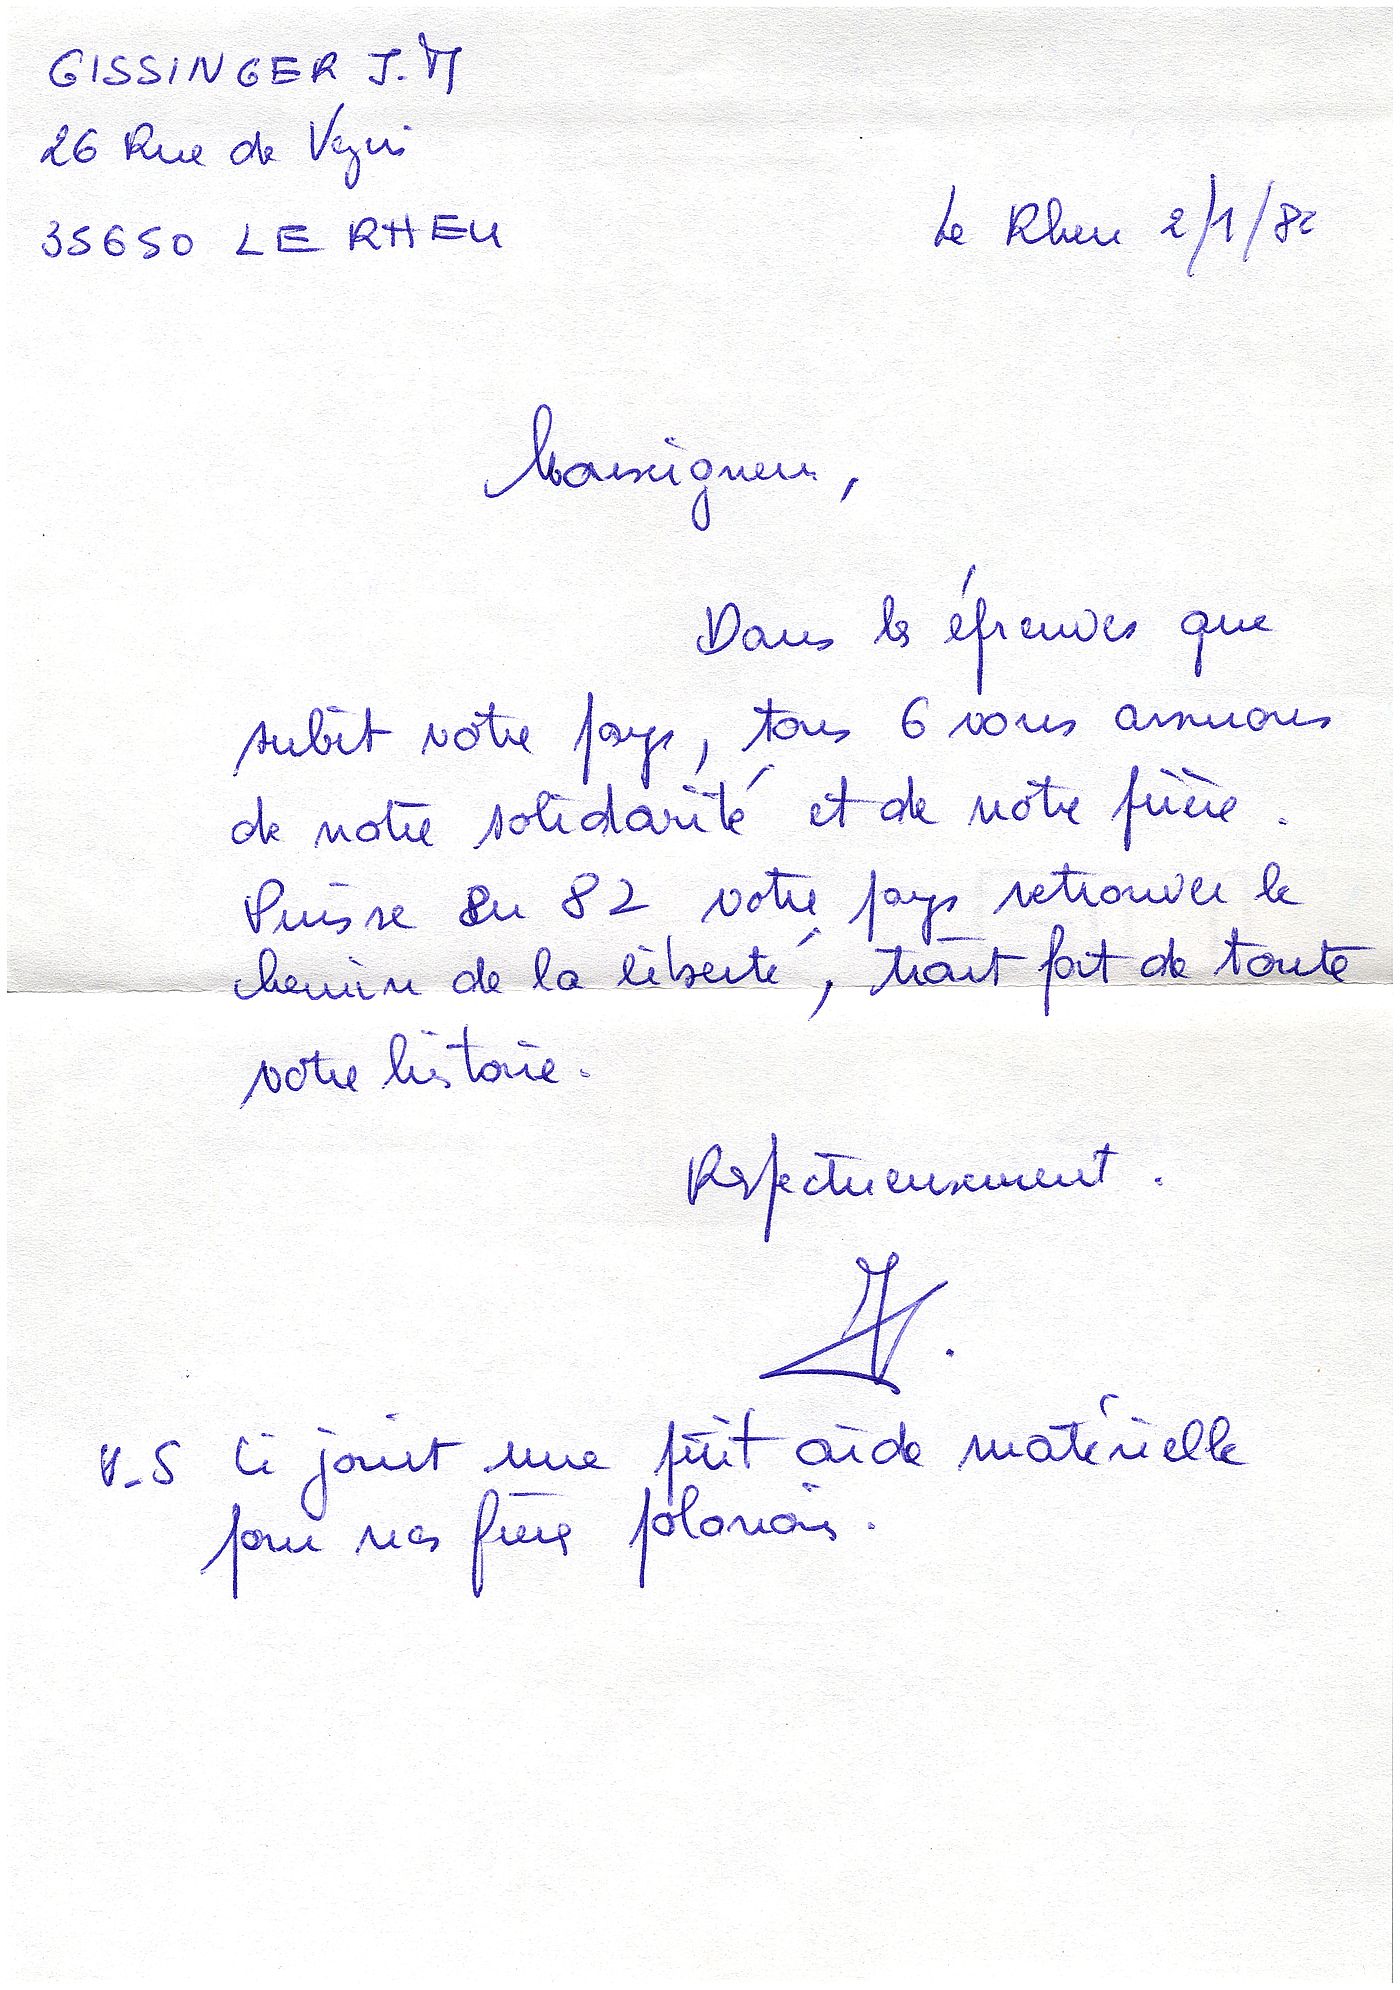 GISSINGER J.M
26 Rue de
35650 LE RHEU
Le Rheu 2/1/82
Monseigneur,
Dans les épreuves que
subit votre pays, tous 6 vous assurons
de notre solidarité et de notre prière.
Puisse en 82 votre pays retrouver le
chemin de la liberté, trait fort de toute
votre histoire.
Respectueusement.
P.S Ci joint une petit aide matérielle
pour nos frères polonais.